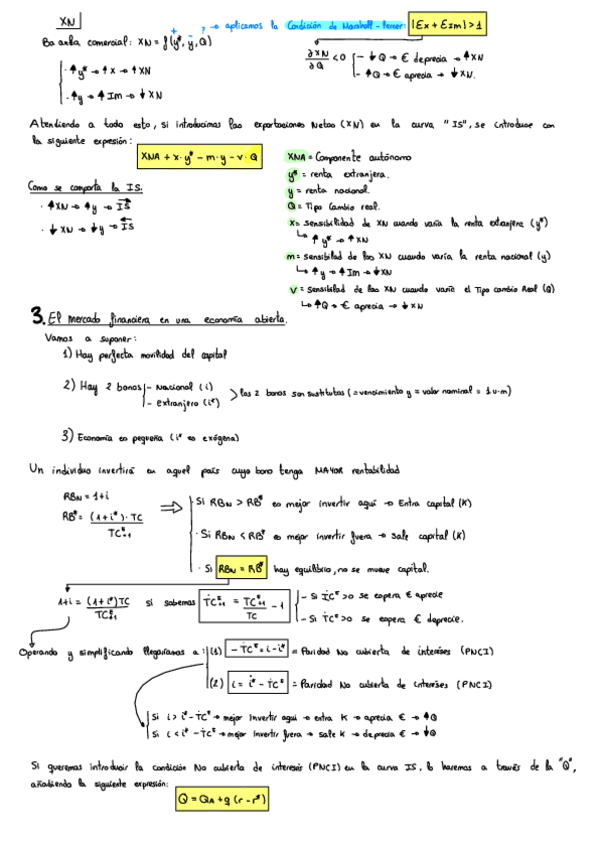 XN
? → aplicamos la Condición de Marshall-Lerner: |Ex + EIm| > 1
Balanza comercial: XN = f(y*, y, Q)
+ -
· ↑y* → ↑x → ↑XN
· ↑y → ↑Im → ↓XN
∂XN/∂Q < 0
- ↓Q → € deprecia → ↑XN
- ↑Q → € aprecia → ↓XN.
Atendiendo a todo esto, si introducimos las exportaciones Netas (XN) en la curva "IS", se introduce con
la siguiente expresión:
XNA + x·y* - m·y - v·Q
Como se comporta la IS.
· ↑XN → ↑y → IS→
· ↓XN → ↓y → IS←
XNA = Componente autónomo
y* = renta extranjera.
y = renta nacional.
Q = Tipo Cambio real.
x = sensibilidad de XN cuando varía la renta extranjera (y*)
↳ ↑y* → ↑XN
m = sensibilidad de las XN cuando varía la renta nacional (y)
↳ ↑y → ↑Im → ↓XN
v = sensibilidad de las XN cuando varíe el Tipo cambio Real (Q)
↳ ↑Q → € aprecia → ↓XN
3. El mercado financiera en una economía abierta.
Vamos a suponer:
1) Hay perfecta movilidad del capital
2) Hay 2 bonos
- Nacional (i)
- extranjero (i*)
> las 2 bonos son sustitutas (= vencimiento y = valor nominal = 1 u·m)
3) Economía es pequeña (i* es exógena)
Un individuo invertirá en aquel país cuyo bono tenga MAYOR rentabilidad
RBN = 1+i
RB* = (1+i*)·TC / TCᴱ+1
⇒
· Si RBN > RB* es mejor invertir aquí → Entra capital (K)
· Si RBN < RB* es mejor invertir fuera → sale capital (K)
· Si RBN = RB* hay equilibrio, no se mueve capital.
1+i = (1+i*)TC / TCᴱ+1
si sabemos
ṪCᴱ+1 = TCᴱ+1 / TC - 1
- Si ṪCᴱ > 0 se espera € aprecie
- Si ṪCᴱ > 0 se espera € deprecie.
Operando y simplificando llegaríamos a:
(1) -ṪCᴱ = i - i* = Paridad No cubierta de intereses (PNCI)
(2) i = i* - ṪCᴱ = Paridad No cubierta de intereses (PNCI)
Si i > i* - ṪCᴱ → mejor invertir aquí → entra K → aprecia € → ↑Q
Si i < i* - ṪCᴱ → mejor invertir fuera → sale K → deprecia € → ↓Q
Si queremos introducir la condición No cubierta de intereses (PNCI) en la curva IS, lo haremos a través de la "Q",
añadiendo la siguiente expresión:
Q = QA + g (r - r*)